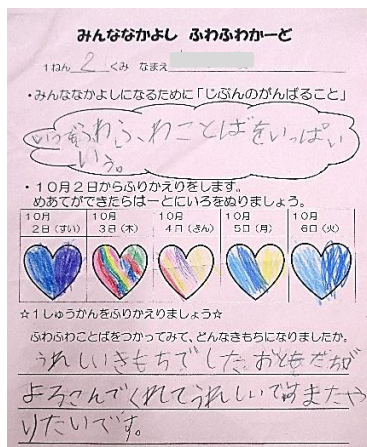 みんななかよし ふわふわかーど
1ねん 2 くみ なまえ
・みんななかよしになるために「じぶんのがんばること」
いつもふわふわことばをいっぱい
いう。
・10月2日からふりかえりをします。
めあてができたらはーとにいろをぬりましょう。
10月 10月 10月 10月 10月
2日(すい) 3日(木) 4日(きん) 5日(月) 6日(火)
☆1しゅうかんをふりかえりましょう☆
ふわふわことばをつかってみて、どんなきもちになりましたか。
うれしいきもちでした。おともだちが
よろこんでくれてうれしいですまたや
りたいです。